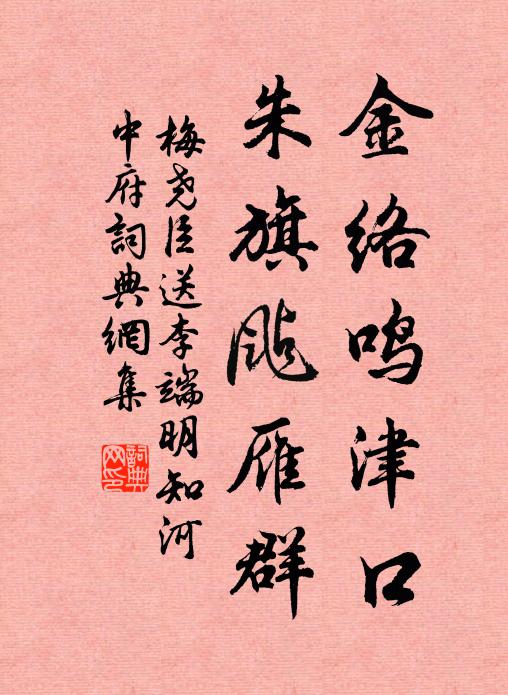 金络鸣津口
朱旗颭雁群
梅尧臣送李端明知河
中府词典网集
詞典
网印